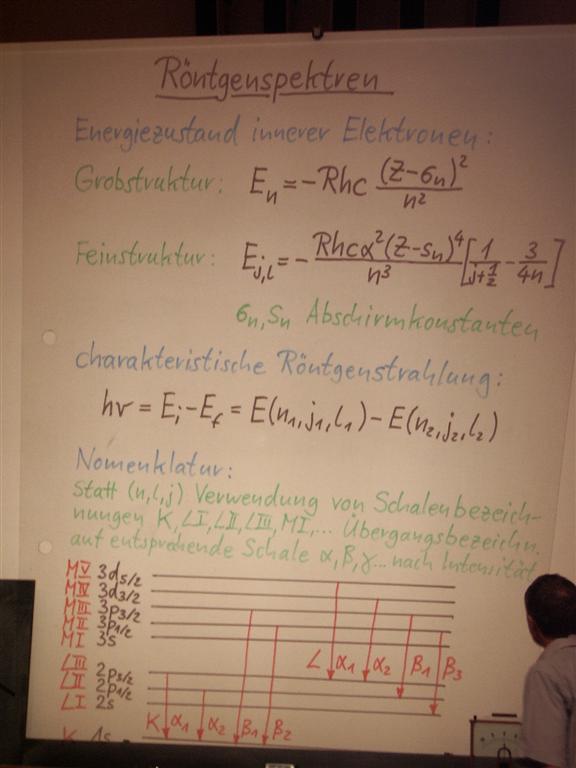 Röntgenspektren
Energiezustand innerer Elektronen:
Grobstruktur: Eₙ = -Rhc (Z-σₙ)²/n²
Feinstruktur: Eⱼ,ₗ = - Rhcα²(Z-sₙ)⁴/n³ [1/(j+½) - 3/4n]
σₙ, Sₙ Abschirmkonstanten
charakteristische Röntgenstrahlung:
hν = Eᵢ - E_f = E(n₁,j₁,l₁) - E(n₂,j₂,l₂)
Nomenklatur:
Statt (n,l,j) Verwendung von Schalenbezeich-
nungen K, LI, LII, LIII, MI,... Übergangsbezeichn.
auf entsprehende Schale α, β, γ... nach Intensität
MV 3d5/2
MIV 3d3/2
MIII 3p3/2
MII 3p1/2
MI 3s
L α₁ α₂ β₁ β₃
LIII 2p3/2
LII 2p1/2
LI 2s
K α₁ α₂ β₁ β₂
K 1s